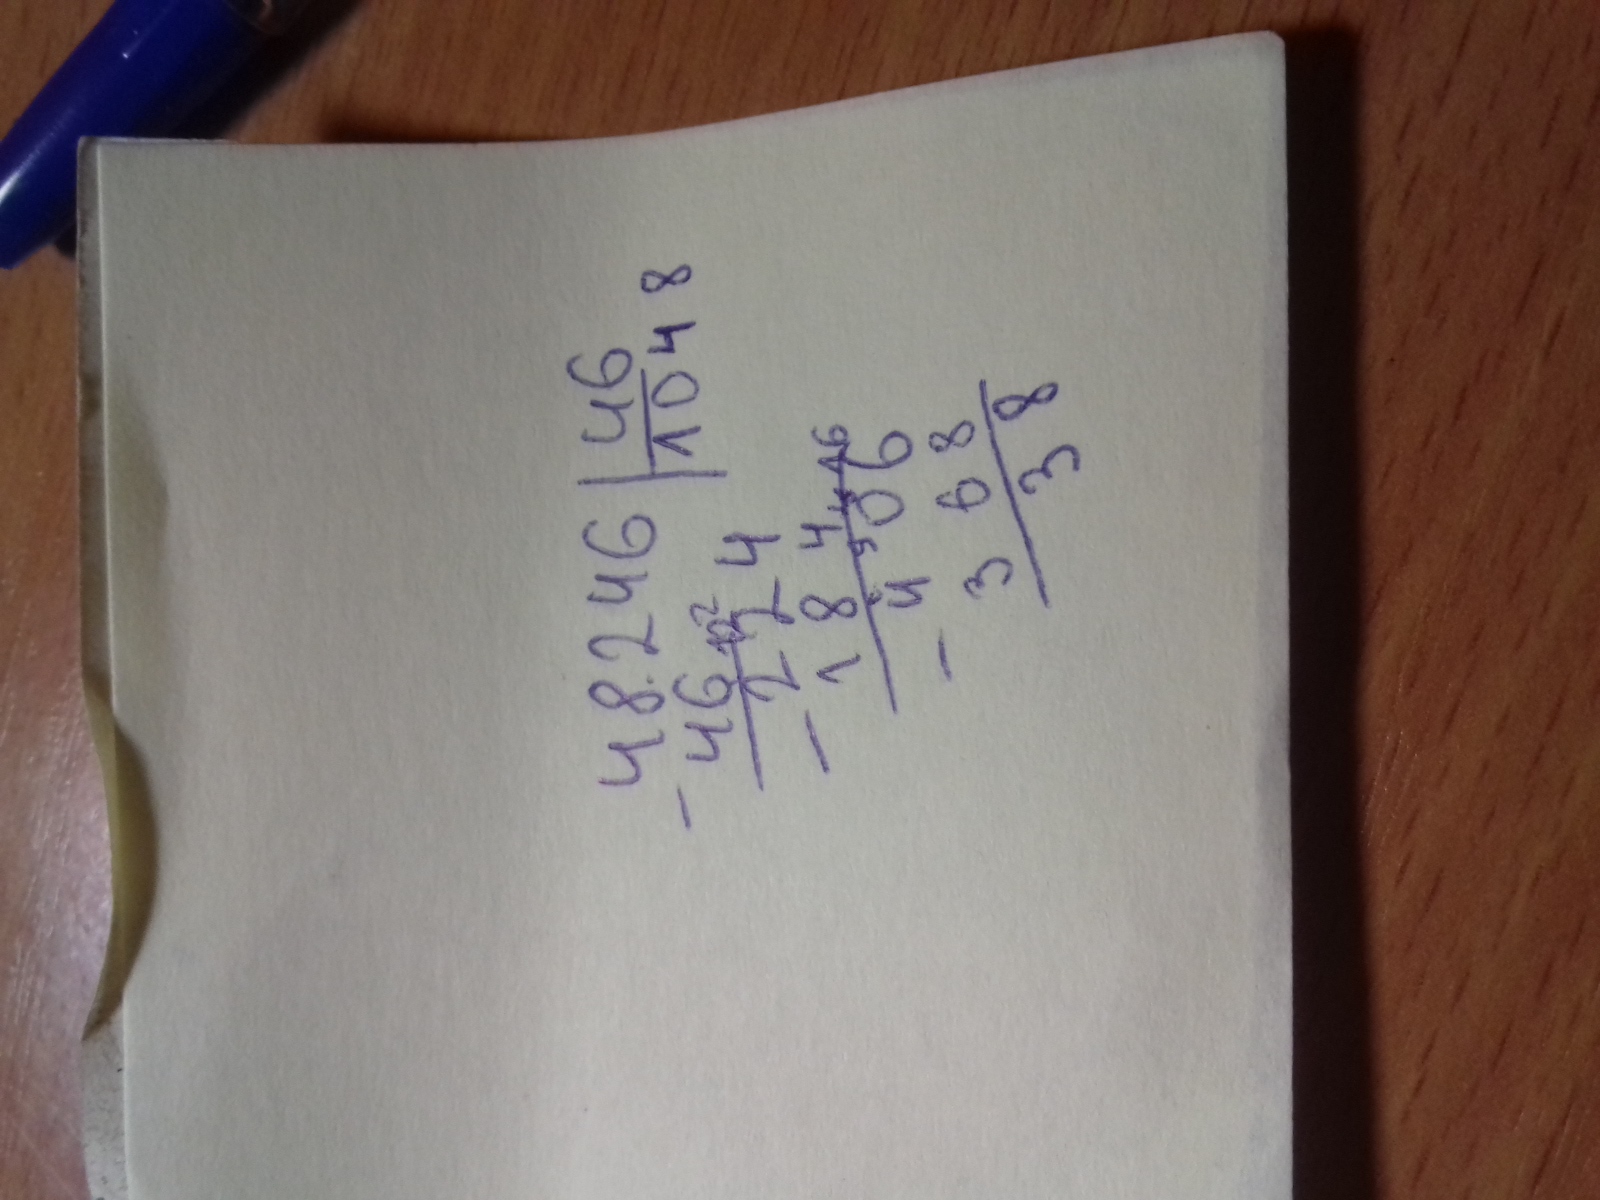 48246 | 46
- 46 1048
224
- 184
406
- 368
38